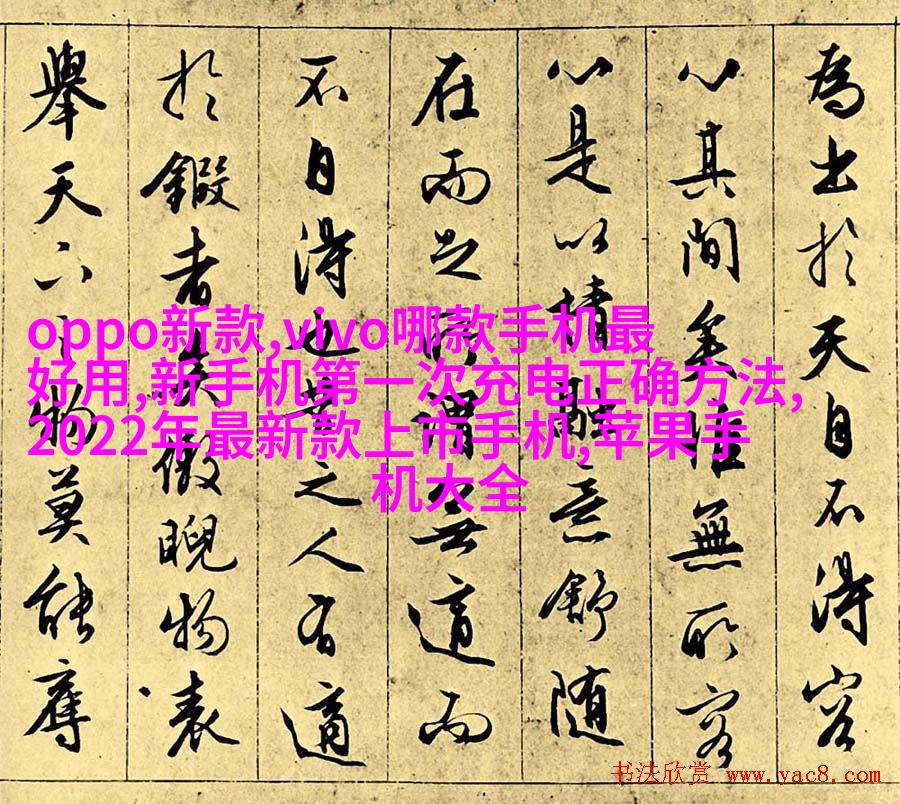 為出於天自不得容
心其間矣惟無所容
心是以情融意舒随
在而足所謂無適而
不自得也之人有適
於鍜者傲睨物表
舉天下之物莫能奪
oppo新款,vivo哪款手机最
好用,新手机第一次充电正确方法,
2022年最新款上市手机,苹果手
机大全
书法欣赏 www.yac8.com